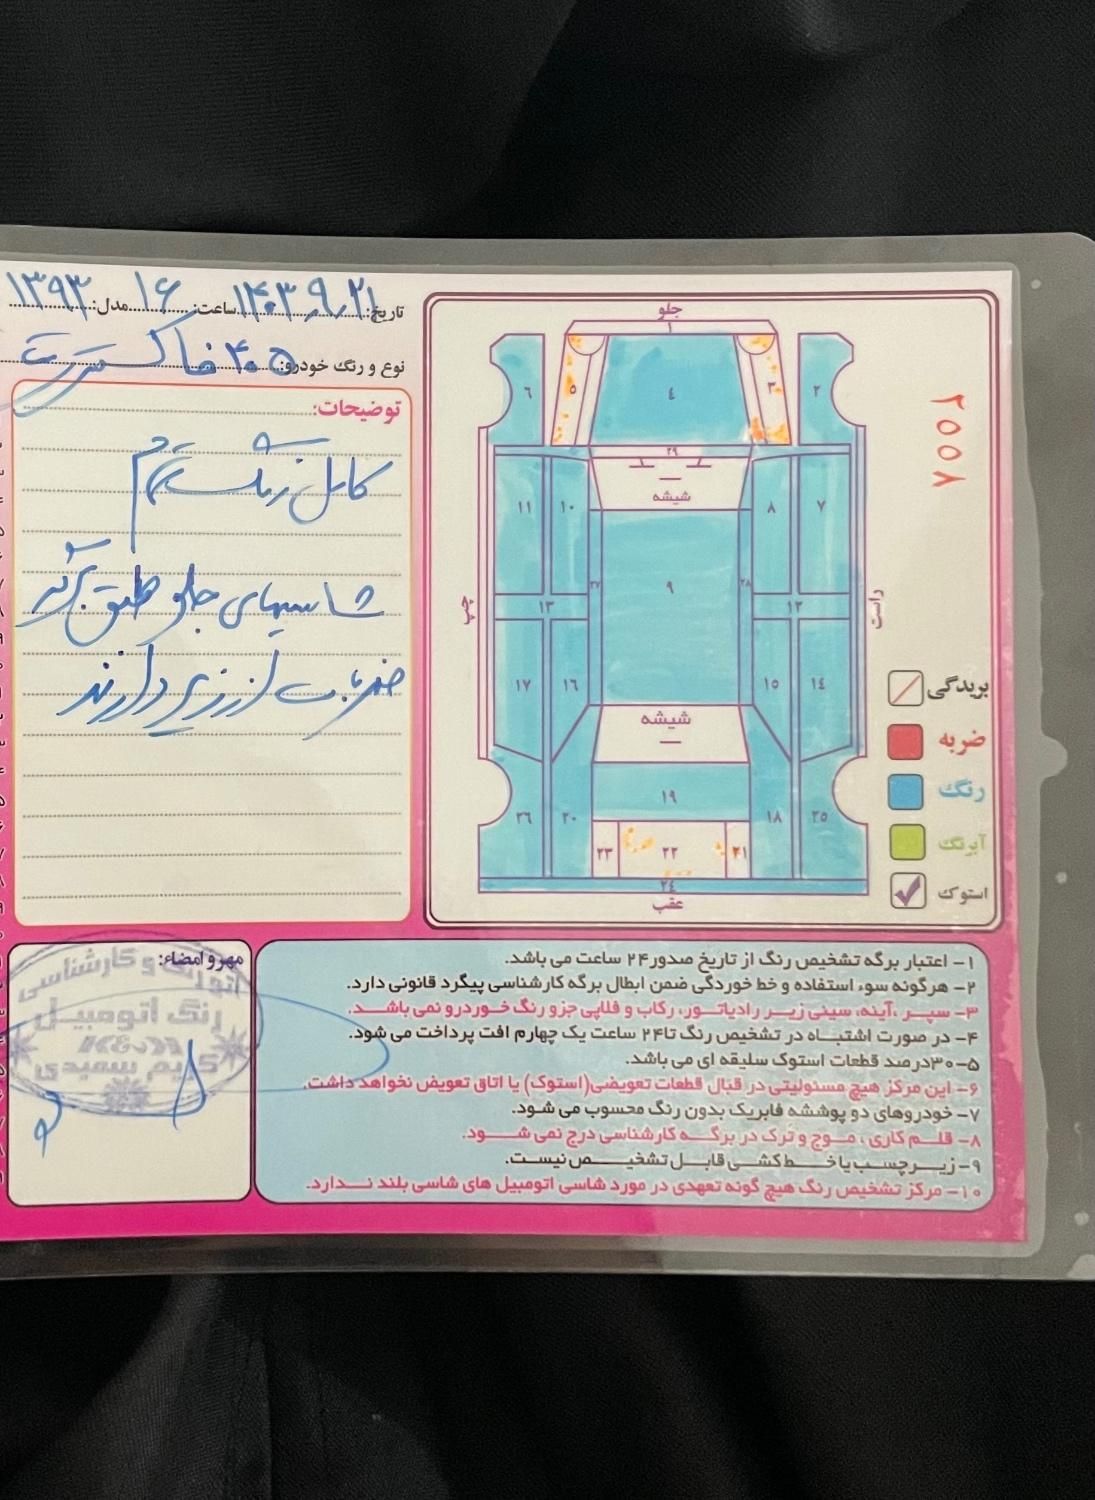 تاریخ: ۱۴۰۳٫۹٫۲۱ ساعت: ۱۶ مدل: ۱۳۹۳
نوع و رنگ خودرو: ۴۰۵ خاکستری
توضیحات:
کامل رنگ شده
شاسیهای جلو طبق برگه
ضربات از زیر دارند
جلو
۱
۶
۵
۴
۳
۲
۲۹
شیشه
۱۱
۱۰
۸
۷
۲۷
۹
۲۸
۱۳
۱۲
چپ
راست
۱۷
۱۶
۱۵
۱۴
شیشه
۱۹
۲۶
۲۰
۱۸
۲۵
۲۳
۲۲
۲۱
۲۴
عقب
۲۵۵۸
بریدگی
ضربه
رنگ
آبرنگ
استوک
مهر و امضاء:
کارشناسی
رنگ اتومبیل
۱- اعتبار برگه تشخیص رنگ از تاریخ صدور ۲۴ ساعت می باشد.
۲- هرگونه سوء استفاده و خط خوردگی ضمن ابطال برگه کارشناسی پیگرد قانونی دارد.
۳- سپر، آینه، سینی زیر رادیاتور، رکاب و قلاپی جزو رنگ خودرو نمی باشد.
۴- در صورت اشتباه در تشخیص رنگ تا ۲۴ ساعت یک چهارم افت پرداخت می شود.
۵- ۳۰درصد قطعات استوک سلیقه ای می باشد.
۶- این مرکز هیچ مسئولیتی در قبال قطعات تعویضی (استوک) یا اتاق تعویض نخواهد داشت.
۷- خودروهای دو پوششه فابریک بدون رنگ محسوب می شود.
۸- قلم کاری، موج و ترک در برگه کارشناسی درج نمی شود.
۹- زیر چسب یا خط کشی قابل تشخیص نیست.
۱۰- مرکز تشخیص رنگ هیچ گونه تعهدی در مورد شاسی اتومبیل های شاسی بلند ندارد.